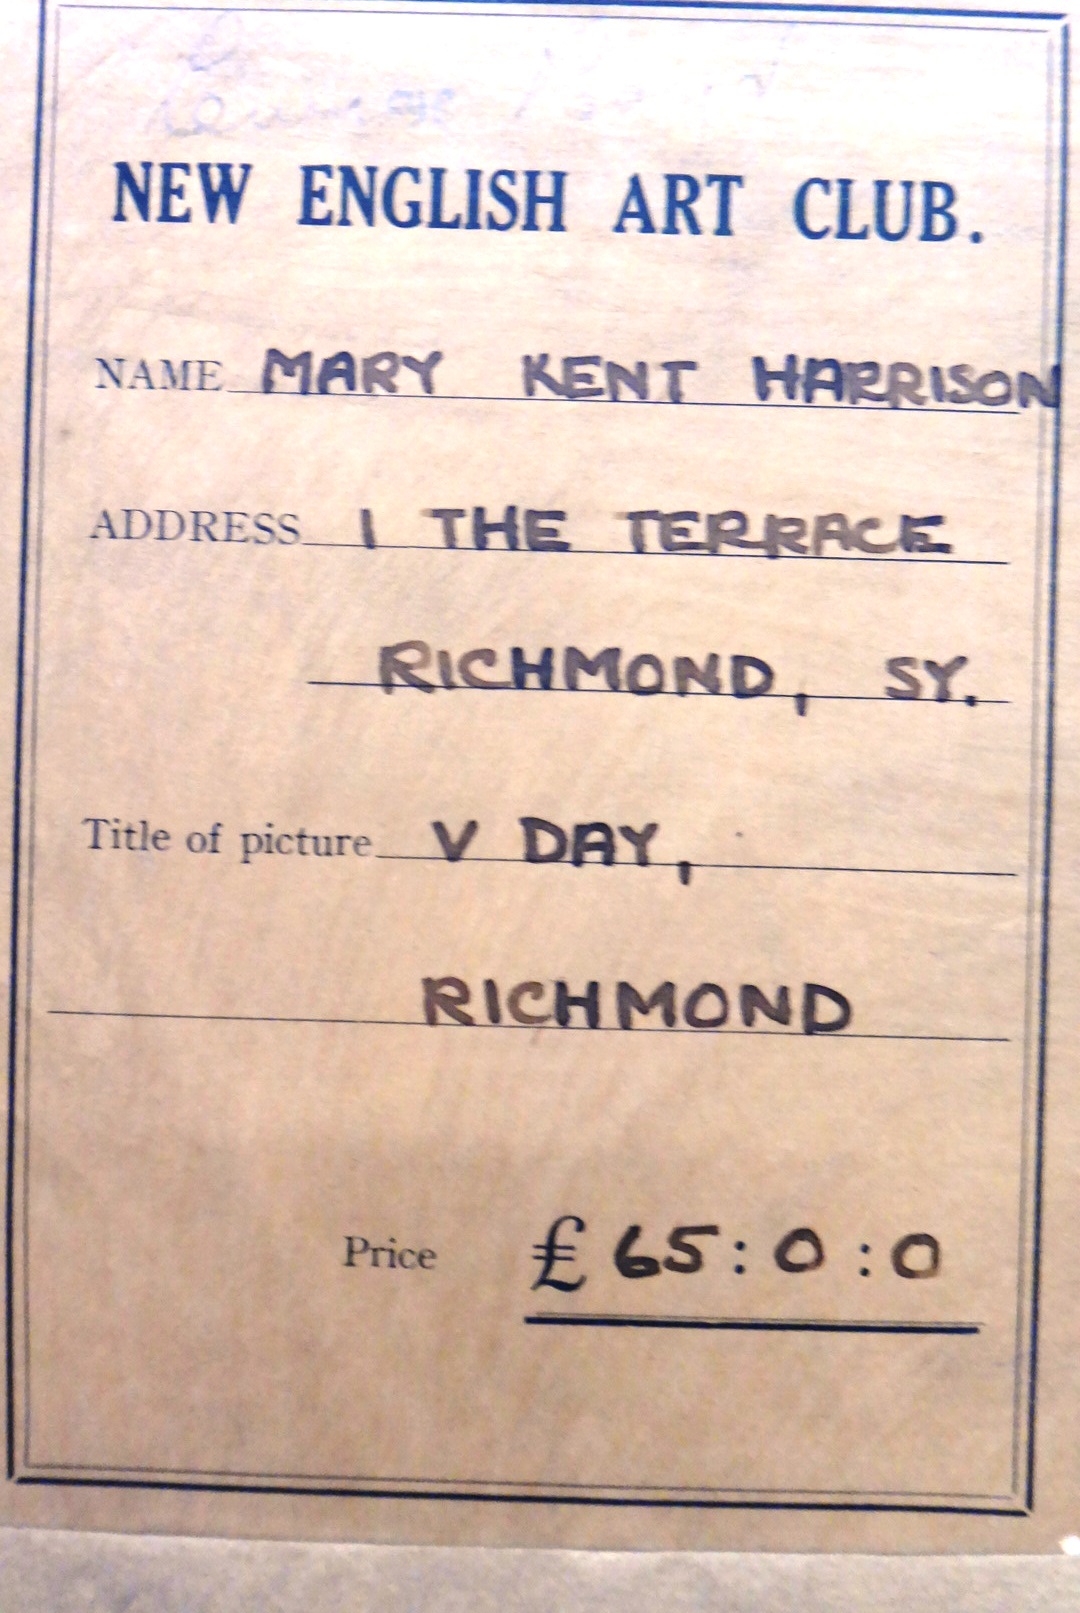 NEW ENGLISH ART CLUB.
NAME MARY KENT HARRISON
ADDRESS 1 THE TERRACE
RICHMOND, SY.
Title of picture V DAY,
RICHMOND
Price £ 65 : 0 : 0